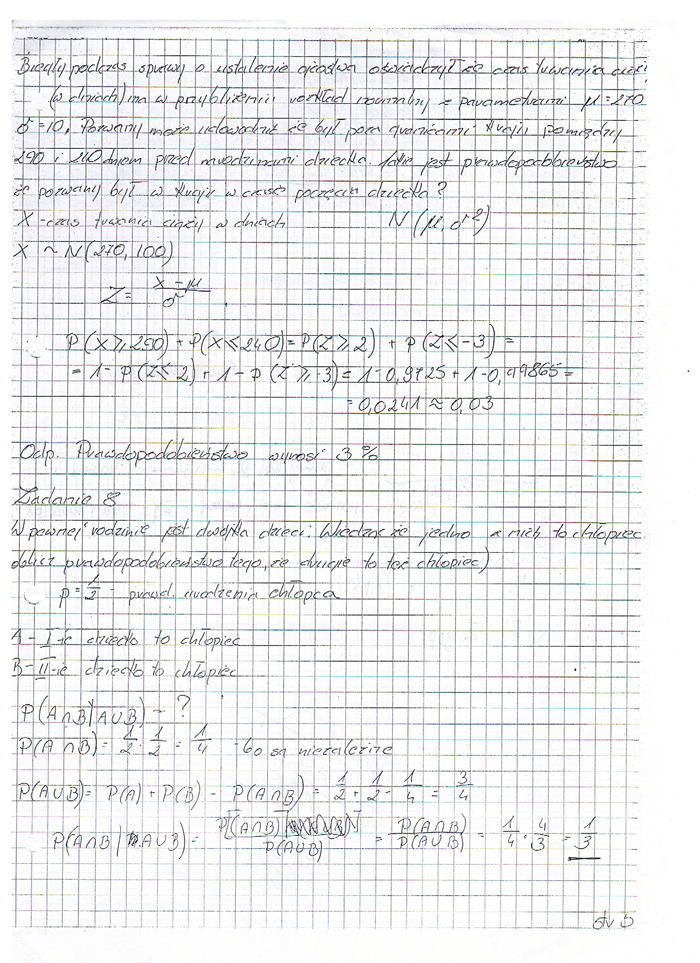 Biegły podczas sprawy o ustalenie ojcostwa oświadczył że czas trwania ciąży
(w dniach) ma w przybliżeniu rozkład normalny z parametrami μ=270
σ=10. Pozwany może udowodnić że był poza granicami kraju pomiędzy
290 i 240 dniem przed narodzinami dziecka. Jakie jest prawdopodobieństwo
że pozwany był w kraju w czasie poczęcia dziecka?
X - czas trwania ciąży w dniach N(μ, σ²)
X ~ N(270, 100)
Z = (X-μ)/σ
P(X⩾290) + P(X⩽240) = P(Z⩾2) + P(Z⩽-3) =
= 1 - P(Z⩽2) + 1 - P(Z⩾-3) = 1 - 0,9725 + 1 - 0,99865 =
= 0,0241 ≈ 0,03
Odp. Prawdopodobieństwo wynosi 3%
Zadanie 8
W pewnej rodzinie jest dwójka dzieci. Wiedząc że jedno z nich to chłopiec
oblicz prawdopodobieństwo tego, że drugie to też chłopiec)
p = 1/2 - prawd. urodzenia chłopca
A - I-ie dziecko to chłopiec
B - II-ie dziecko to chłopiec
P(A∩B|A∪B) - ?
P(A∩B) = 1/2 · 1/2 = 1/4 - bo są niezależne
P(A∪B) = P(A) + P(B) - P(A∩B) = 1/2 + 1/2 - 1/4 = 3/4
P(A∩B | A∪B) = P[(A∩B)]/P(A∪B) = P(A∩B)/P(A∪B) = 1/4 · 4/3 = 1/3
str 5